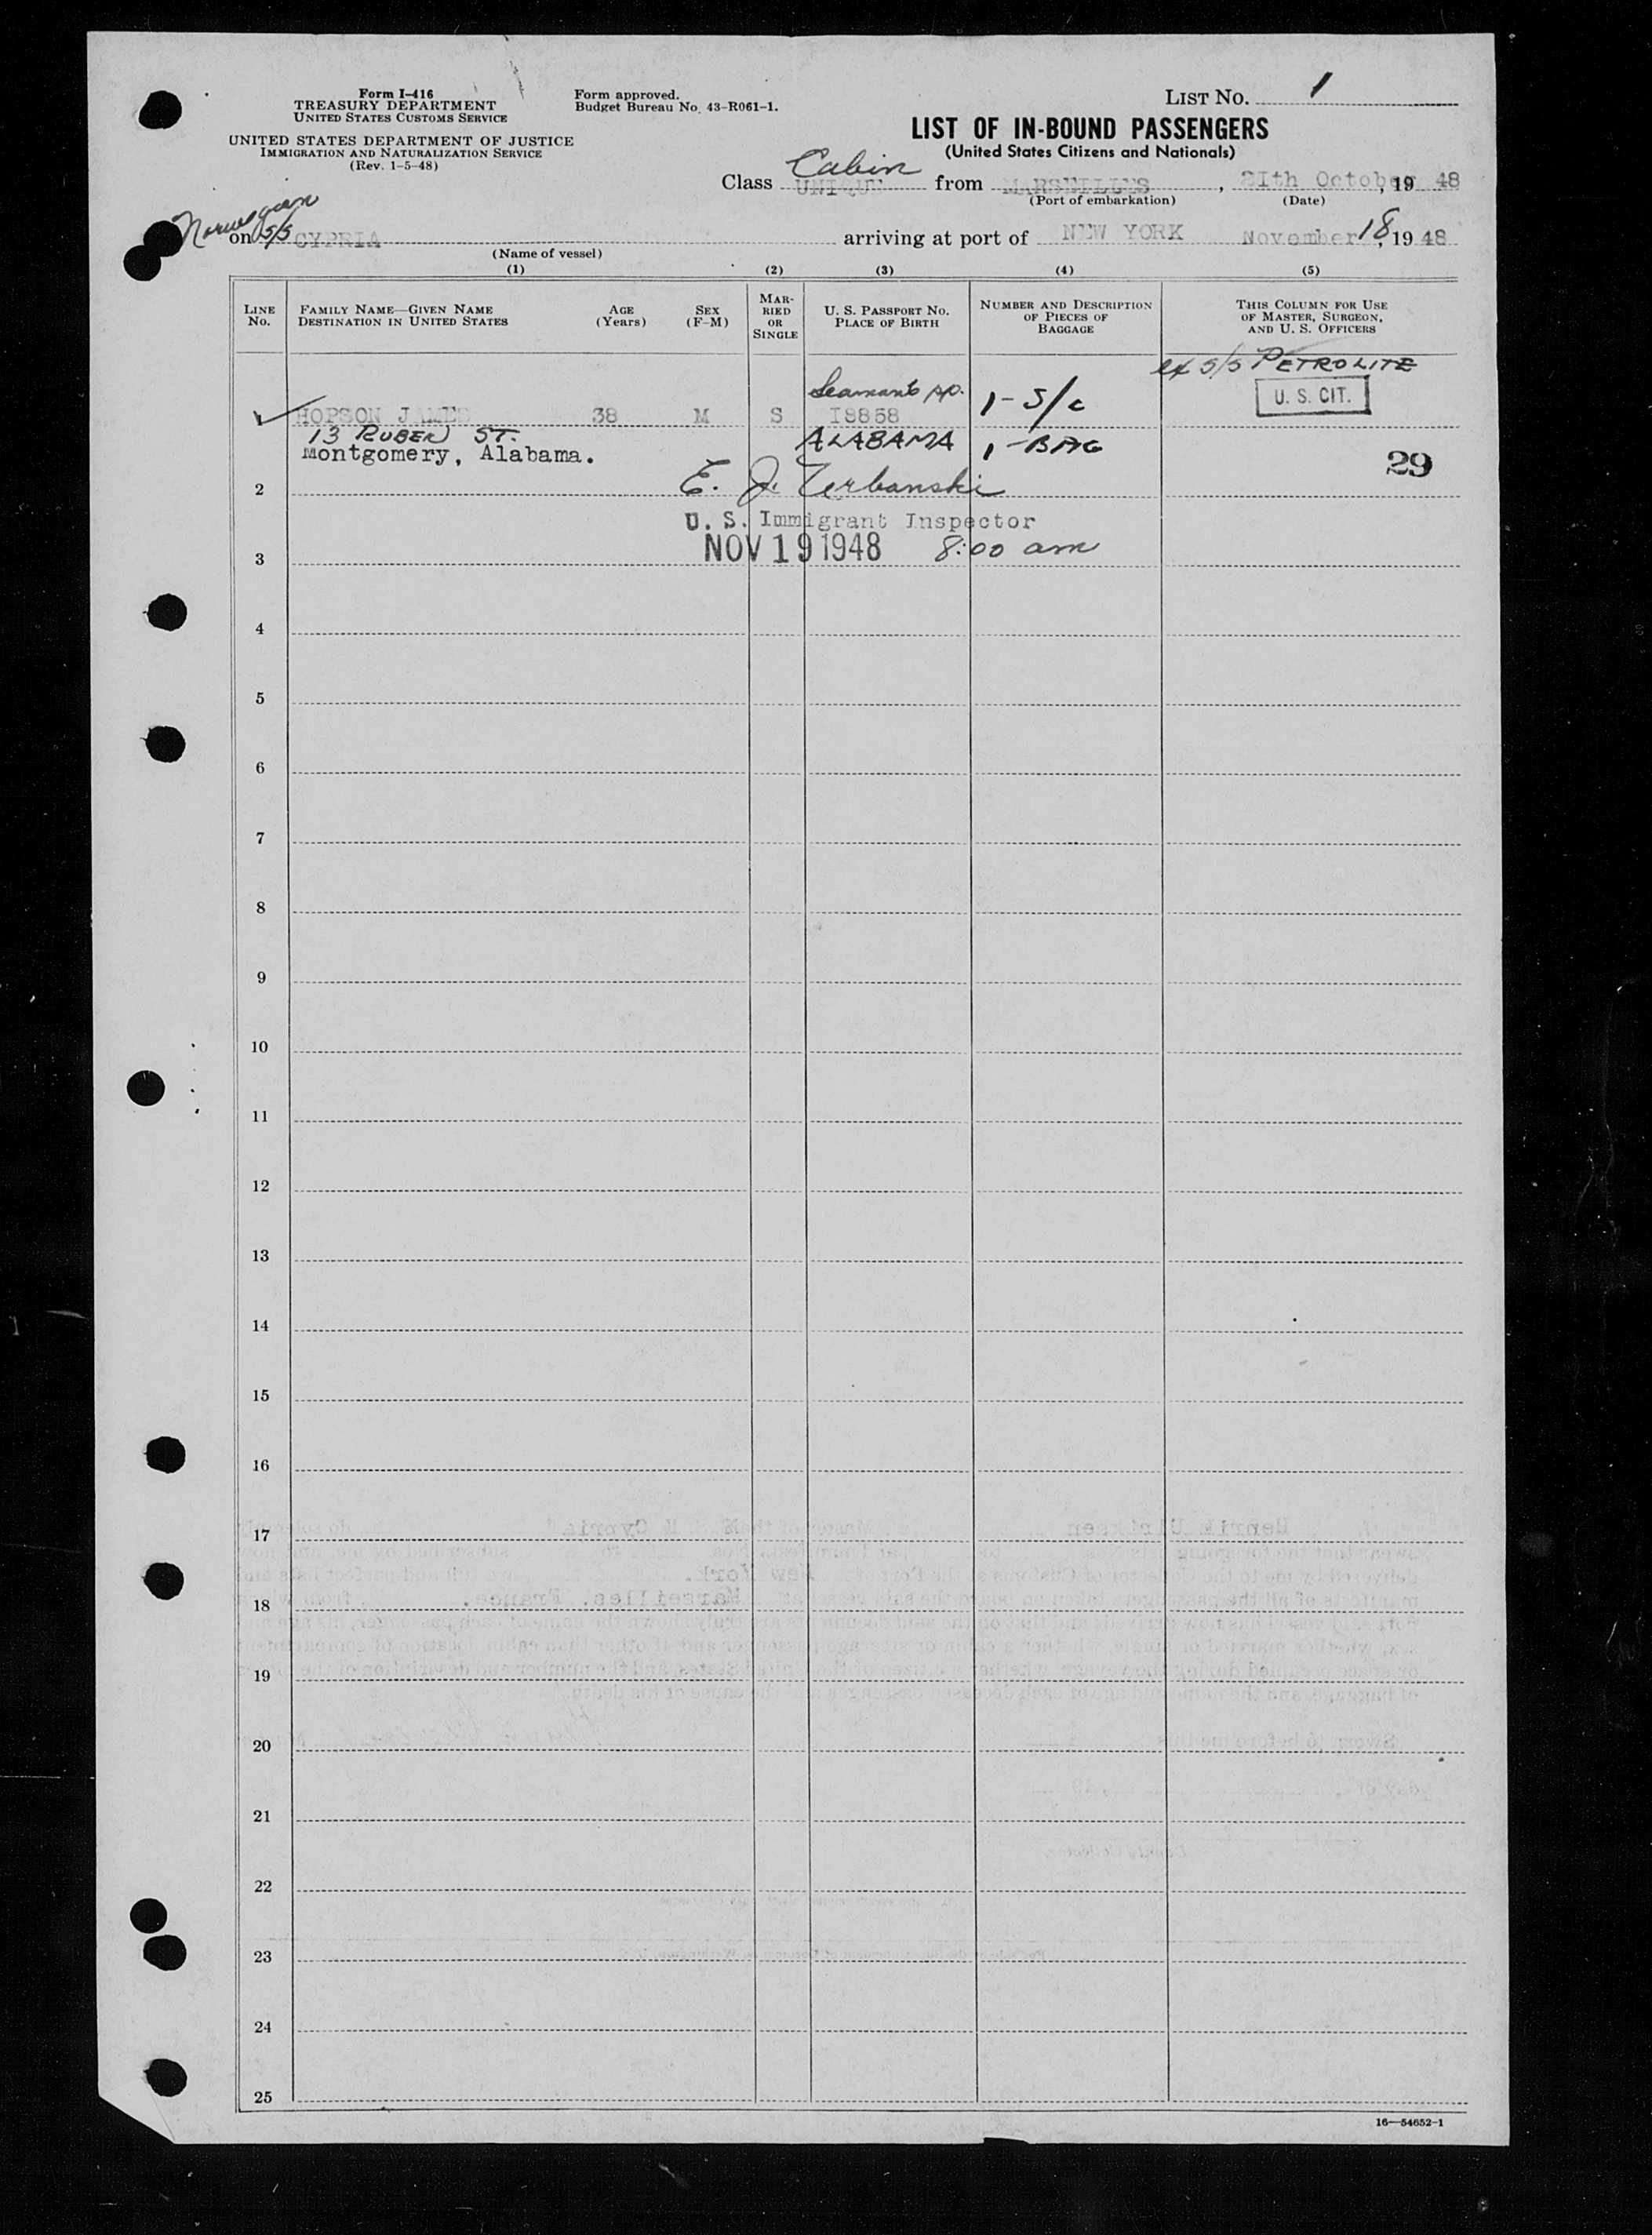 Form I-416
TREASURY DEPARTMENT
UNITED STATES CUSTOMS SERVICE
UNITED STATES DEPARTMENT OF JUSTICE
IMMIGRATION AND NATURALIZATION SERVICE
(Rev. 1-5-48)
Form approved.
Budget Bureau No. 43-R061-1.
LIST NO. 1
LIST OF IN-BOUND PASSENGERS
(United States Citizens and Nationals)
Cabin
Class UNIQUE from MARSEILLES, 21th October, 19 48
(Port of embarkation) (Date)
Norwegian
on S/S CYPRIA arriving at port of NEW YORK November 18, 19 48
(Name of vessel)
(1) (2) (3) (4) (5)
LINE NO.
FAMILY NAME—GIVEN NAME
DESTINATION IN UNITED STATES
AGE (Years)
SEX (F-M)
MARRIED OR SINGLE
U. S. PASSPORT NO.
PLACE OF BIRTH
NUMBER AND DESCRIPTION OF PIECES OF BAGGAGE
THIS COLUMN FOR USE OF MASTER, SURGEON, AND U. S. OFFICERS
ex S/S PETROLITE
U. S. CIT.
Seaman's pp.
HOPSON JAMES 38 M S I8858 1-S/c
13 RUBEN ST. ALABAMA 1-BAG
Montgomery, Alabama.
29
2 E. J. Urbanski
U. S. Immigrant Inspector
3 NOV 19 1948 8:00 am
4
5
6
7
8
9
10
11
12
13
14
15
16
17
18
19
20
21
22
23
24
25
16—54652-1